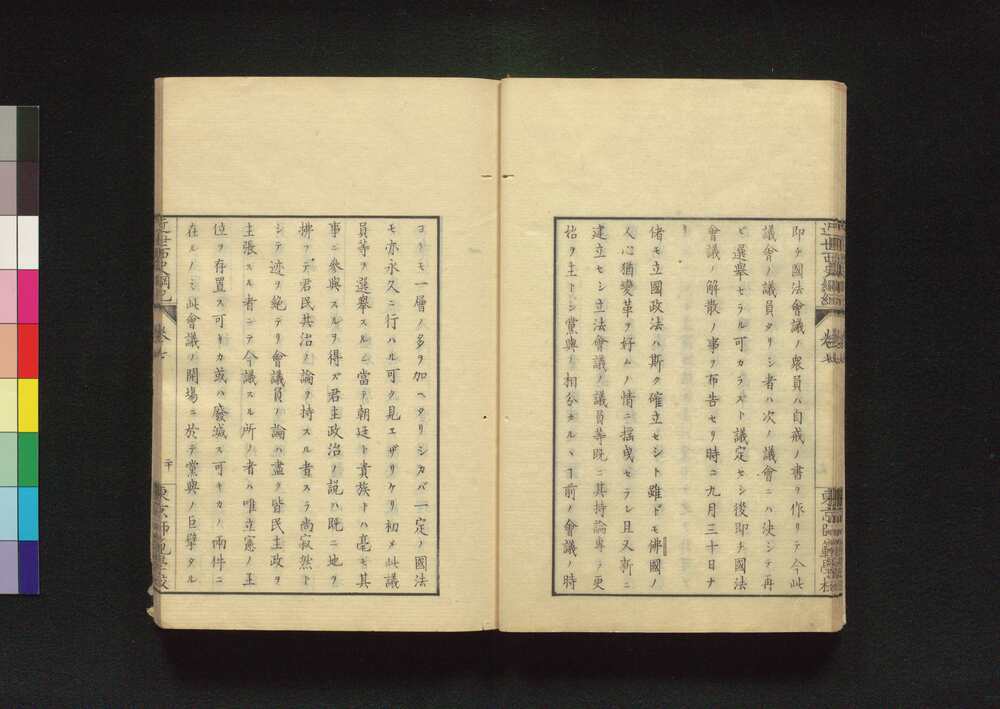 即チ國法會議ノ衆員ハ自戒ノ書ヲ作リテ今此
議會ノ議員タリシ者ハ次ノ議會ニハ決シテ再
ビ選擧セラル可カラズト議定セシ後即チ國法
會議ノ解散ノ事ヲ布告セリ時ニ九月三十日ナ
偖モ立國政法ハ斯ク確立セシト雖ドモ佛國ノ
人心猶變革ヲ好ムノ情ニ揺曳セラレ且又新ニ
建立セシ立法會議ノ議員等既ニ其持論專ラ更
治ヲ主トシ黨與ノ相分セル丶ヿ前ノ會議ノ時
ヨリモ一層ノ多ヲ加ヘタリシカバ一定ノ國法
モ亦永久ニ行ハル可ク見エザリケリ初メ此議
員等ヲ選擧スルニ當テ朝廷ト貴族トハ毫モ其
事ニ參與スルヲ得ズ君主政治ノ説ハ既ニ地ヲ
拂フテ君民共治ノ論ヲ持スル者スラ尚寂然ト
シテ迹ヲ絶テリ會議員ノ論ハ盡ク皆民主政ヲ
主張スル者ニテ今議スル所ノ者ハ唯立憲ノ王
位ヲ存置ス可キカ或ハ廢滅ス可キカノ兩件ニ
在ルノミ此會議ノ開場ニ於テ黨與ノ巨擘タル
近世西史綱紀 卷七 二十 東京師範學校